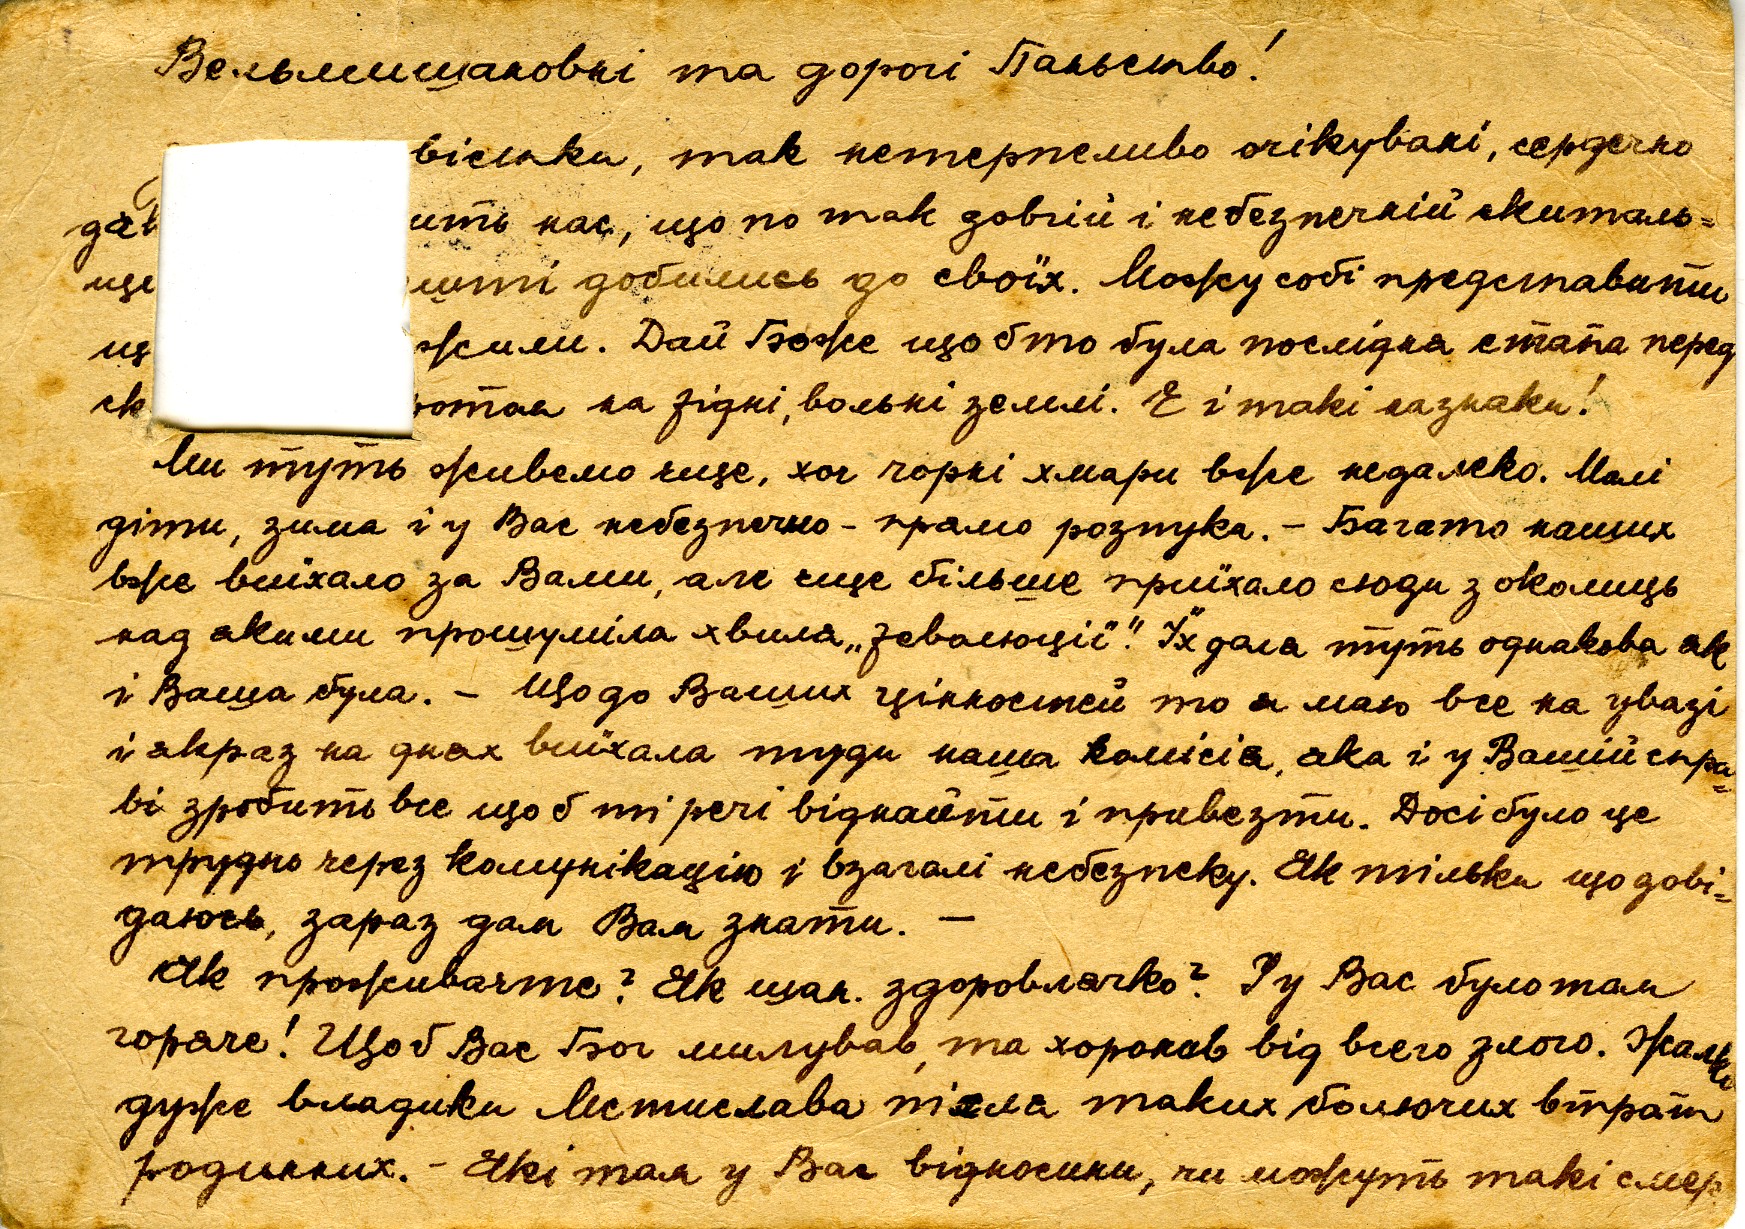 Вельмишановні та дорогі Паньство!
вістки, так нетерпеливо очікувані, сердечно
ить нас, що по так довгій і небезпечній скиталь=
добились до своїх. Можу собі представити
жили. Дай Боже щоб то була послідна етапа перед
на рідні, вольні землі. Є і такі казнаки!
Ми туть живемо еще, хоч чорні хмари вже недалеко. Малі
діти, зима і у Вас небезпечно - прямо розпука. - Багато наших
вже виїхало за Вами, але еще більше приїхало сюди з околиць
над якими прошуміла хвиля „революції". Їх доля туть однакова як
і Ваша була. - Щодо Ваших цінностей то я маю все на увазі
і якраз на днях виїхала туди наша комісія, яка і у Вашій спра=
ві зробить все щоб ті речі віднайти і привезти. Досі було це
трудно через комунікацію і взагалі небезпеку. Як тільки що дові=
даюсь, зараз дам Вам знати. —
Як проживаєте? Як шан. здоровлячко? І у Вас було там
горяче! Щоб Вас Бог милував, та хоронив від всего злого. Жалко
дуже владики Мстислава після таких болючих втрат
родинних. - Які там у Вас відносини, чи можуть такі смер